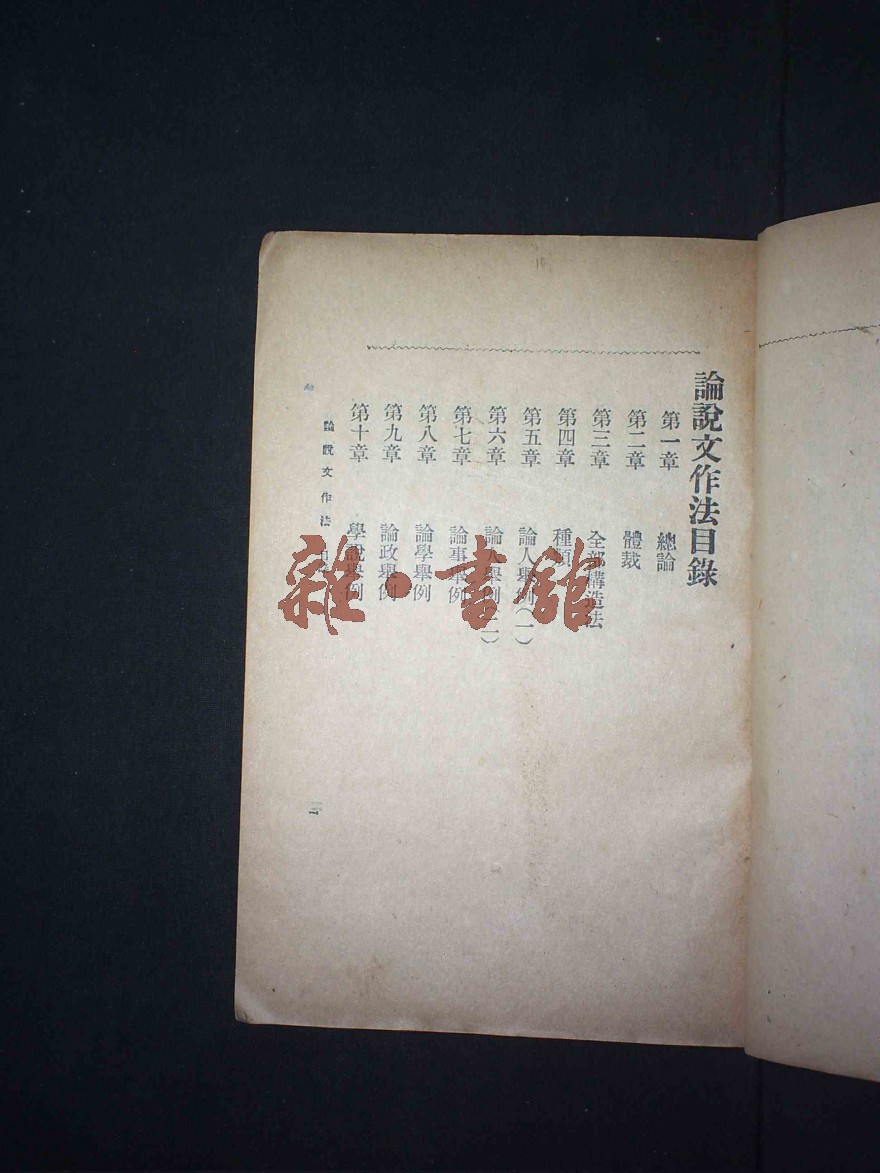 論說文作法目錄
第一章 總論
第二章 體裁
第三章 全部構造法
第四章 種類
第五章 論人舉例(一)
第六章 論人舉例(二)
第七章 論事舉例
第八章 論學舉例
第九章 論政舉例
第十章 學說舉例
論說文作法 目
雜·書館